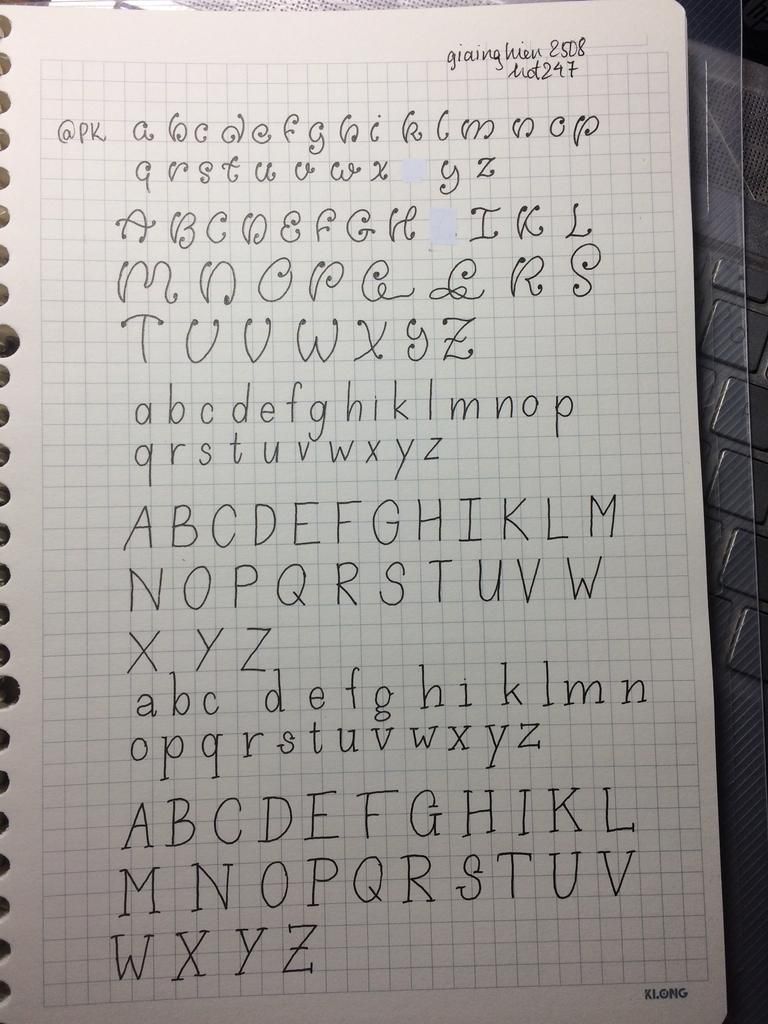 giainghien 2508
hot247
@PK a b c d e f g h i k l m n o p
q r s t u v w x y z
A B C D E F G H I K L
M N O P Q Q R S
T U V W X Y Z
a b c d e f g h i k l m n o p
q r s t u v w x y z
A B C D E F G H I K L M
N O P Q R S T U V W
X Y Z
a b c d e f g h i k l m n
o p q r s t u v w x y z
A B C D E F G H I K L
M N O P Q R S T U V
W X Y Z
KLONG